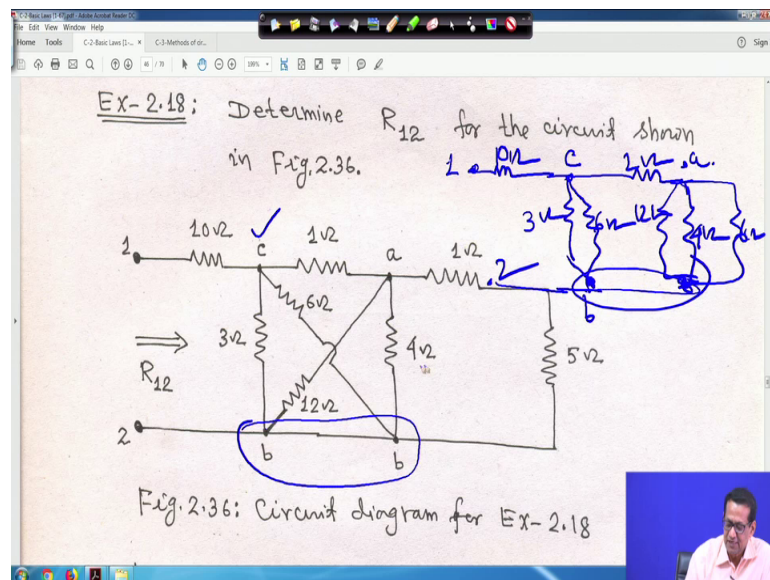 C-2-Basic Laws [1-67].pdf - Adobe Acrobat Reader DC
File Edit View Window Help
Home Tools C-2-Basic Laws [1-... × C-3-Methods of cir... Sign
46 / 78 199%
Ex-2.18: Determine R12 for the circuit shown
in Fig. 2.36.
1 10Ω c 1Ω a
3Ω 6Ω 12Ω 4Ω 6Ω
2 b
1 10Ω c 1Ω a 1Ω
6Ω
3Ω 4Ω 5Ω
R12
12Ω
2 b b
Fig. 2.36: Circuit diagram for Ex-2.18